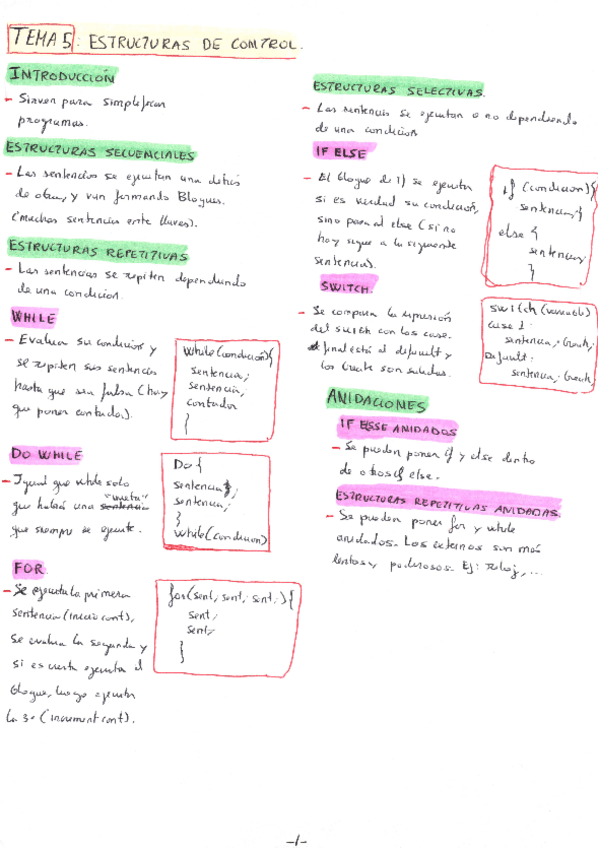 TEMA 5: ESTRUCTURAS DE CONTROL.
INTRODUCCIÓN
- Sirven para simplificar
programas.
ESTRUCTURAS SECUENCIALES
- Las sentencias se ejecutan una detrás
de otra, y van formando Bloques.
(muchas sentencias entre llaves).
ESTRUCTURAS REPETITIVAS
- Las sentencias se repiten dependiendo
de una condición.
WHILE
- Evalúan su condición y
se repiten sus sentencias
hasta que sea falsa (hay
que poner contador).
while(condición){
sentencia;
sentencia;
contador
}
DO WHILE
- Igual que while solo
que habrá una sentencia "vuelta"
que siempre se ejecute.
Do {
sentencia;
sentencia;
}
while(condicion)
FOR
- Se ejecuta la primera
sentencia (inicio cont),
se evalua la segunda y
si es cierta ejecuta el
bloque, luego ejecuta
la 3ª (increment cont).
for(sent; sent; sent;){
sent;
sent;
}
ESTRUCTURAS SELECTIVAS.
- Las sentencias se ejecutan o no dependiendo
de una condición
IF ELSE
- El bloque de if se ejecuta
si es verdad su condición,
sino pasa al else (si no
hay sigue a la siguiente
sentencia).
if (condicion){
sentencias;}
else {
sentencias;
}
SWITCH.
- Se compara la expresión
del switch con los case.
Al final está el default y
los break son salidas.
switch (variable)
case 1:
sentencia; break;
Default:
sentencia; break;
ANIDACIONES
IF ESSE ANIDADOS
- Se pueden poner if y else dentro
de otros if else.
ESTRUCTURAS REPETITIVAS ANIDADAS.
- Se pueden poner for y while
anidados. Los externos son más
lentos y poderosos. Ej: Reloj, ...
-1-